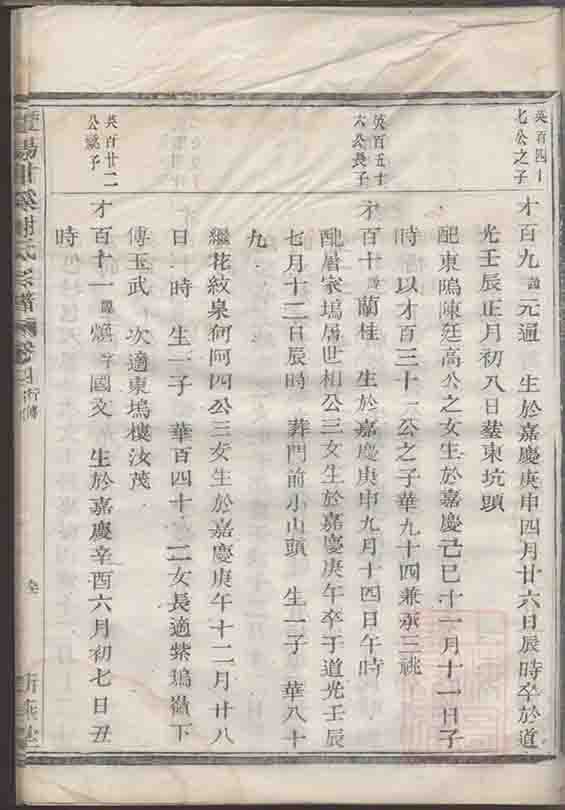 英百四十
七公之子
才百九 諱元通 生於嘉慶庚申四月廿六日辰時卒於道
光壬辰正月初八日塟東坑頭
配東鳴陳廷高公之女生於嘉慶己巳十一月十一日子
時 以才百三十一公之子華九十四兼承三祧
英百五十
六公長子
才百十 諱蘭桂 生於嘉慶庚申九月十四日午時
配厝家塢厲世相公三女生於嘉慶庚午卒于道光壬辰
七月十二日辰時 葬門前小山頭 生一子 華八十
九
繼花紋泉何阿四公三女生於嘉慶庚午十二月廿八
日 時 生一子 華百四十 二女長適紫塢嶺下
傅玉武 次適東塢樓汝茂
英百廿二
公 子
才百十一 諱煥 字國文 生於嘉慶辛酉六月初七日丑
時
氏宗譜
行傳